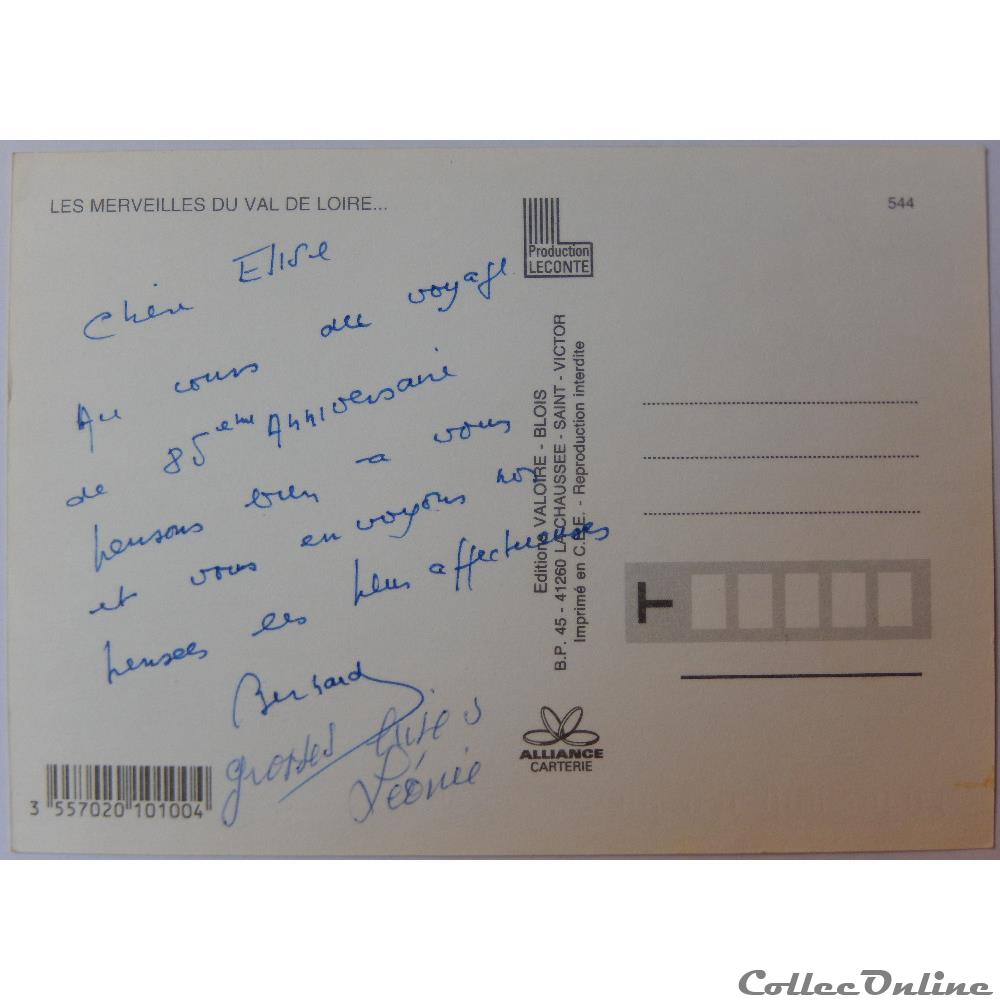 LES MERVEILLES DU VAL DE LOIRE...
544
Production
LECONTE
Chère Elise
Au cours du voyage
de 85ème Anniversaire
pensons bien a vous
et vous envoyons nos
pensees les plus affectueuses
Bernard
grosses bises
Léonie
Editions VALOIRE - BLOIS
B.P. 45 - 41260 LA CHAUSSEE - SAINT - VICTOR
Imprimé en C.E.E. - Reproduction interdite
T
ALLIANCE
CARTERIE
3 557020 101004
CollecOnline